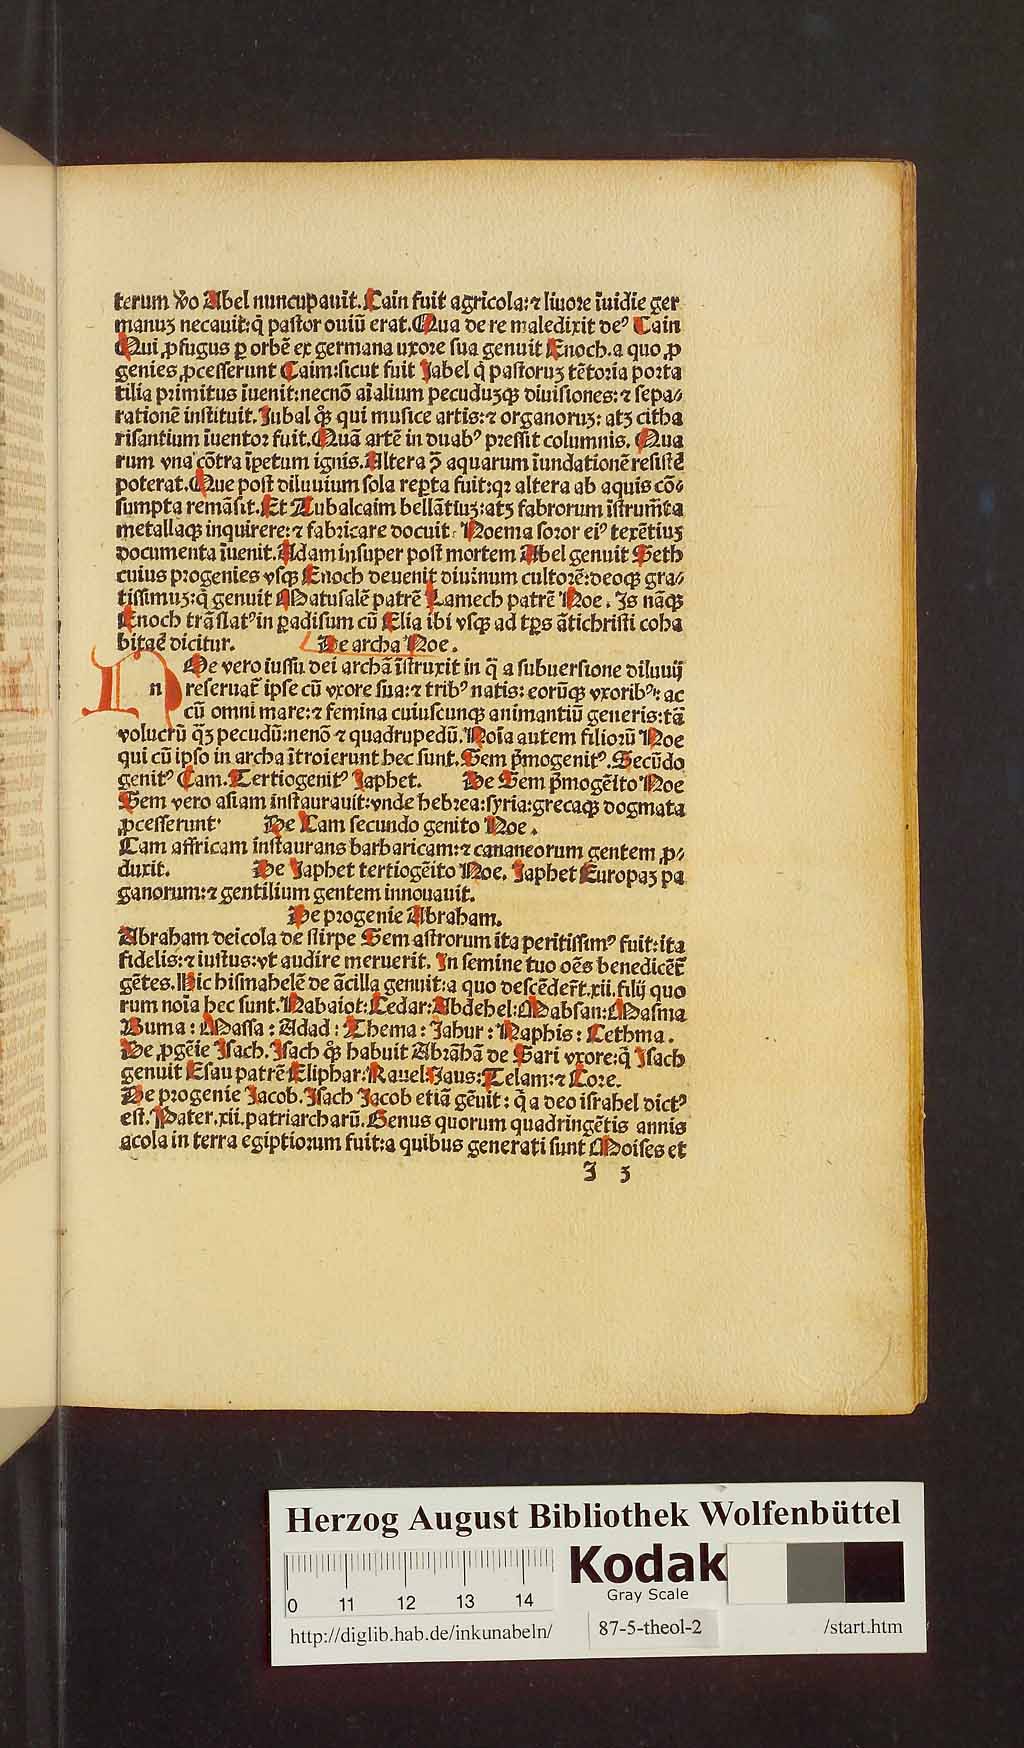 terum v̾o Abel nuncupauit. Cain fuit agricola: ⁊ liuore īuidie ger
manuꝫ necauit: q̄ pastor ouiū erat. Qua de re maledixit deꝰ Cain
Qui ꝓfugus ꝑ orbē ex germana uxore sua genuit Enoch. a quo ꝓ
genies ꝓcesserunt Caim: sicut fuit Jabel q̄ pastoruꝫ tētoria porta
tilia primitus īuenit: necnō aīalium pecuduꝫqꝫ diuisiones: ⁊ sepa⸗
rationē instituit. Jubal q̊ꝫ qui musice artis: ⁊ organoruꝫ: atꝫ citha
risantium īuentor fuit. Quā artē in duabꝰ pressit columnis. Qua
rum vna cōtra īpetum ignis. Altera ꝓ̄ aquarum īundationē resistē
poterat. Que post diluuium sola reꝑta fuit: qꝛ altera ab aquis cō⸗
sumpta remāsit. Et Tubalcaim bellātiuꝫ: atꝫ fabrorum īstrum̄ta
metallaqꝫ inquirere: ⁊ fabricare docuit. Noema soror eiꝰ texētiuꝫ
documenta īuenit. Adam insuper post mortem Abel genuit Seth
cuius progenies vsqꝫ Enoch deuenit diuinum cultorē: deoqꝫ gra⸗
tissimuꝫ: q̄ genuit Matusalē patrē Lamech patrē Noe. Is nāqꝫ
Enoch trāslatꝰ in ꝑadisum cū Elia ibi vsqꝫ ad tp̄s ātichristi coha
bitaē dicitur. De archa Noe.
n Oe vero iussu dei archā īstruxit in q̄ a subuersione diluuij
reseruat̄ ipse cū vxore sua: ⁊ tribꝰ natis: eorūqꝫ vxoribꝰ: ac
cū omni mare: ⁊ femina cuiuscunqꝫ animantiū generis: tā
volucrū q̄ꝫ pecudū: nenō ⁊ quadrupedū. Noīa autem filiorū Noe
qui cū ipso in archa ītroierunt hec sunt. Sem p̄mogenitꝰ. Secūdo
genitꝰ Cam. Tertiogenitꝰ Japhet. De Sem p̄mogēīto Noe
Sem vero asiam instaurauit: vnde hebrea: syria: grecaqꝫ dogmata
ꝓcesserunt. De Cam secundo genito Noe.
Cam affricam instaurans barbaricam: ⁊ cananeorum gentem ꝓ⸗
duxit. De Japhet tertiogēito Noe. Japhet Europaꝫ pa
ganorum: ⁊ gentilium gentem innouauit.
De progenie Abraham.
Abraham deicola de stirpe Sem astrorum ita peritissimꝰ fuit: ita
fidelis: ⁊ iustus: vt audire meruerit. In semine tuo oēs benedicēt̄
gētes. Hic hismahelē de ācilla genuit: a quo descēder̄t. xii. filij quo
rum noīa hec sunt. Nabaiot: Cedar: Abdehel: Mabsan: Masma
Buma: Massa: Adad: Thema: Jahur: Naphis: Cethma.
De ꝓgēie Isach. Isach q̊ꝫ habuit Abrāhā de Sari vxore: q̄ Isach
genuit Esau patrē Eliphar: Rauel: Jaus: Telam: ⁊ Core.
De progenie Jacob. Isach Jacob etiā gēuit: q̄ a deo israhel dictꝰ
est. Pater. xii. patriarcharū. Genus quorum quadringētis annis
acola in terra egiptiorum fuit: a quibus generati sunt Moises et
J 3
Herzog August Bibliothek Wolfenbüttel
Kodak
Gray Scale
0 11 12 13 14
http://diglib.hab.de/inkunabeln/ 87-5-theol-2 /start.htm